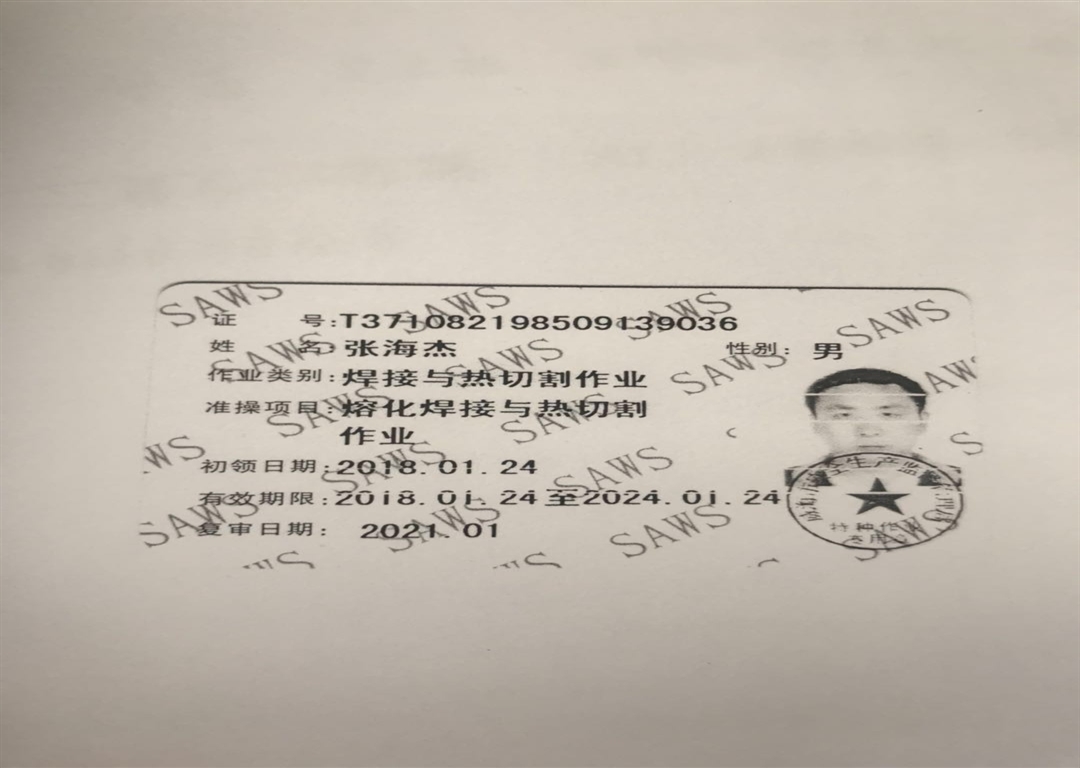 证 号:T371082198509139036
姓 名:张海杰 性别: 男
作业类别:焊接与热切割作业
准操项目:熔化焊接与热切割
作业
初领日期:2018.01.24
有效期限:2018.01.24至2024.01.24
复审日期: 2021.01
SAWS
SAWS
SAWS
SAWS
SAWS
SAWS
SAWS
SAWS
SAWS
SAWS
SAWS
SAWS
SAWS